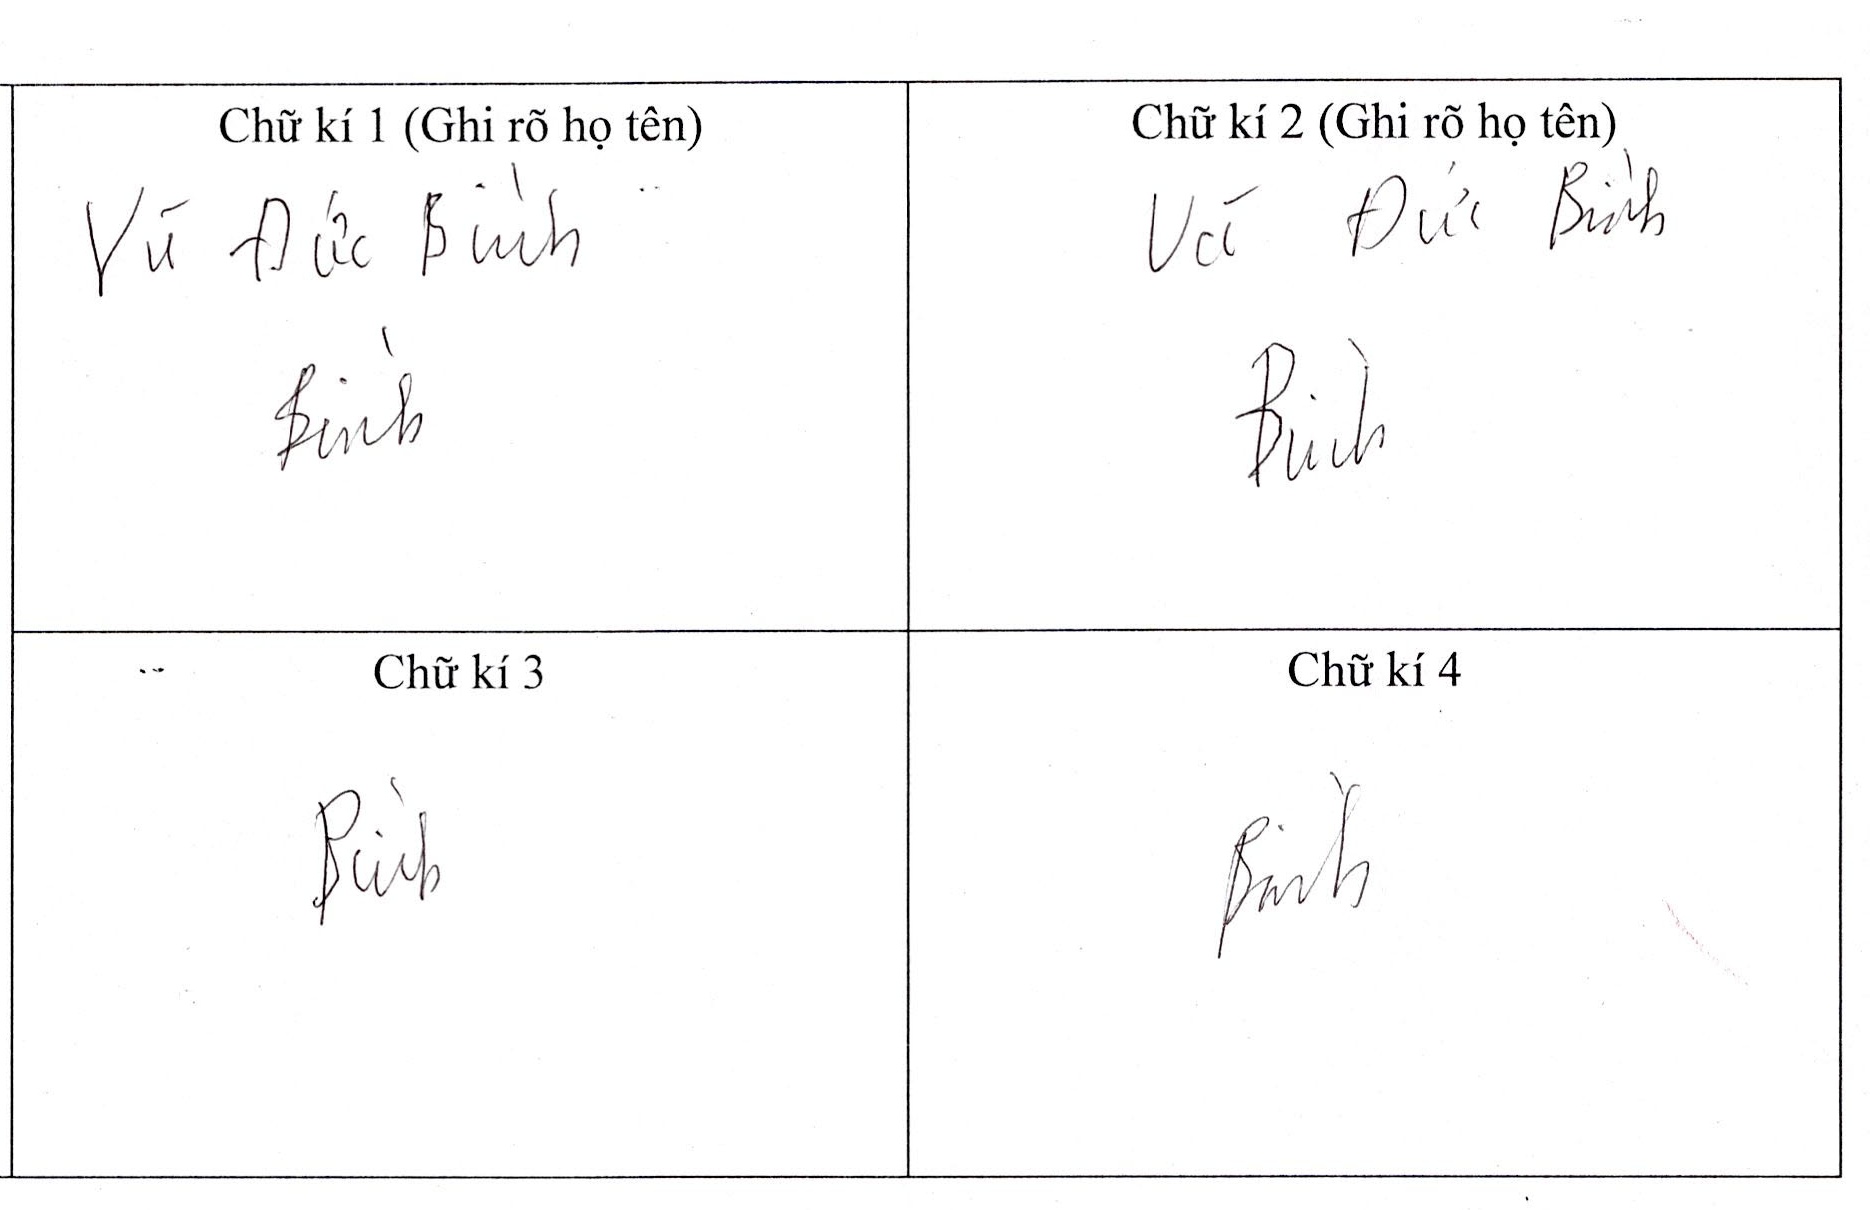 Chữ kí 1 (Ghi rõ họ tên)
Vũ Đức Bình
Bình
Chữ kí 2 (Ghi rõ họ tên)
Vũ Đức Bình
Bình
Chữ kí 3
Bình
Chữ kí 4
Bình